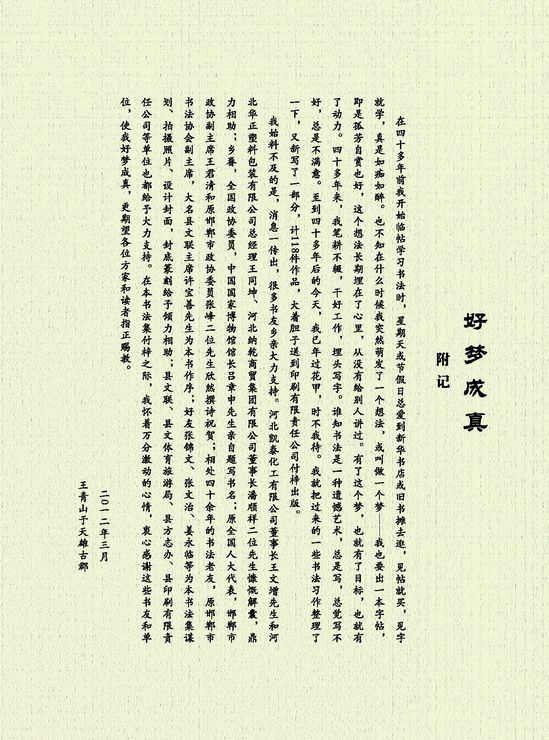 好梦成真
附记
在四十多年前我开始临帖学习书法时，星期天或节假日总爱到新华书店或旧书摊去逛，见帖就买，见字
就学，真是如痴如醉。也不知在什么时候我突然萌发了一个想法，或叫做一个梦——我也要出一本字帖，
即是孤芳自赏也好，这个想法长期埋在了心里，从没有给别人讲过。有了这个梦，也就有了目标，也就有
了动力。四十多年来，我笔耕不辍，干好工作，埋头写字。谁知书法是一种遗憾艺术，总是写，总觉写不
好，总是不满意。至到四十多年后的今天，我已年过花甲，时不我待。我就把过来的一些书法习作整理了
一下，又新写了一部分，计118件作品，大着胆子送到印刷有限责任公司付梓出版。
我始料不及的是，消息一传出，很多书友乡亲大力支持。河北凯泰化工有限公司董事长王文增先生和河
北华正塑料包装有限公司总经理王同坤、河北纳乾商贸集团有限公司董事长潘顺祥二位先生慷慨解囊，鼎
力相助；乡眷，全国政协委员，中国国家博物馆馆长吕章申先生亲自题写书名；原全国人大代表，邯郸市
政协副主席王君清和原邯郸市政协委员张峰二位先生欣然撰诗祝贺；相处四十余年的书法老友，原邯郸市
书法协会副主席，大名县文联主席许宝善先生为本书作序；好友张锦文、张文治、姜永临等为本书法集谋
划、拍摄照片、设计封面，封底篆刻给予倾力相助；县文联、县文体育旅游局、县方志办、县印刷有限责
任公司等单位也都给予大力支持。在本书法集付梓之际，我怀着万分激动的心情，衷心感谢这些书友和单
位，使我好梦成真，更期望各位方家和读者指正赐教。
二〇一二年三月
王青山于天雄古郡